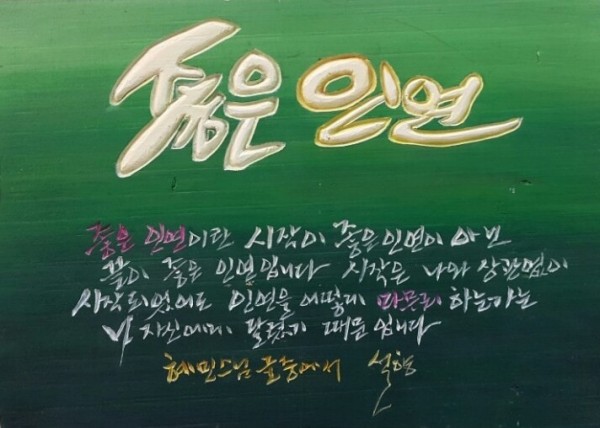 좋은 인연
좋은 인연이란 시작이 좋은 인연이 아닌
끝이 좋은 인연입니다 시작은 나와 상관없이
시작되었어도 인연을 어떻게 마무리 하는가는
나 자신에게 달렸기 때문입니다
혜민스님 글중에서